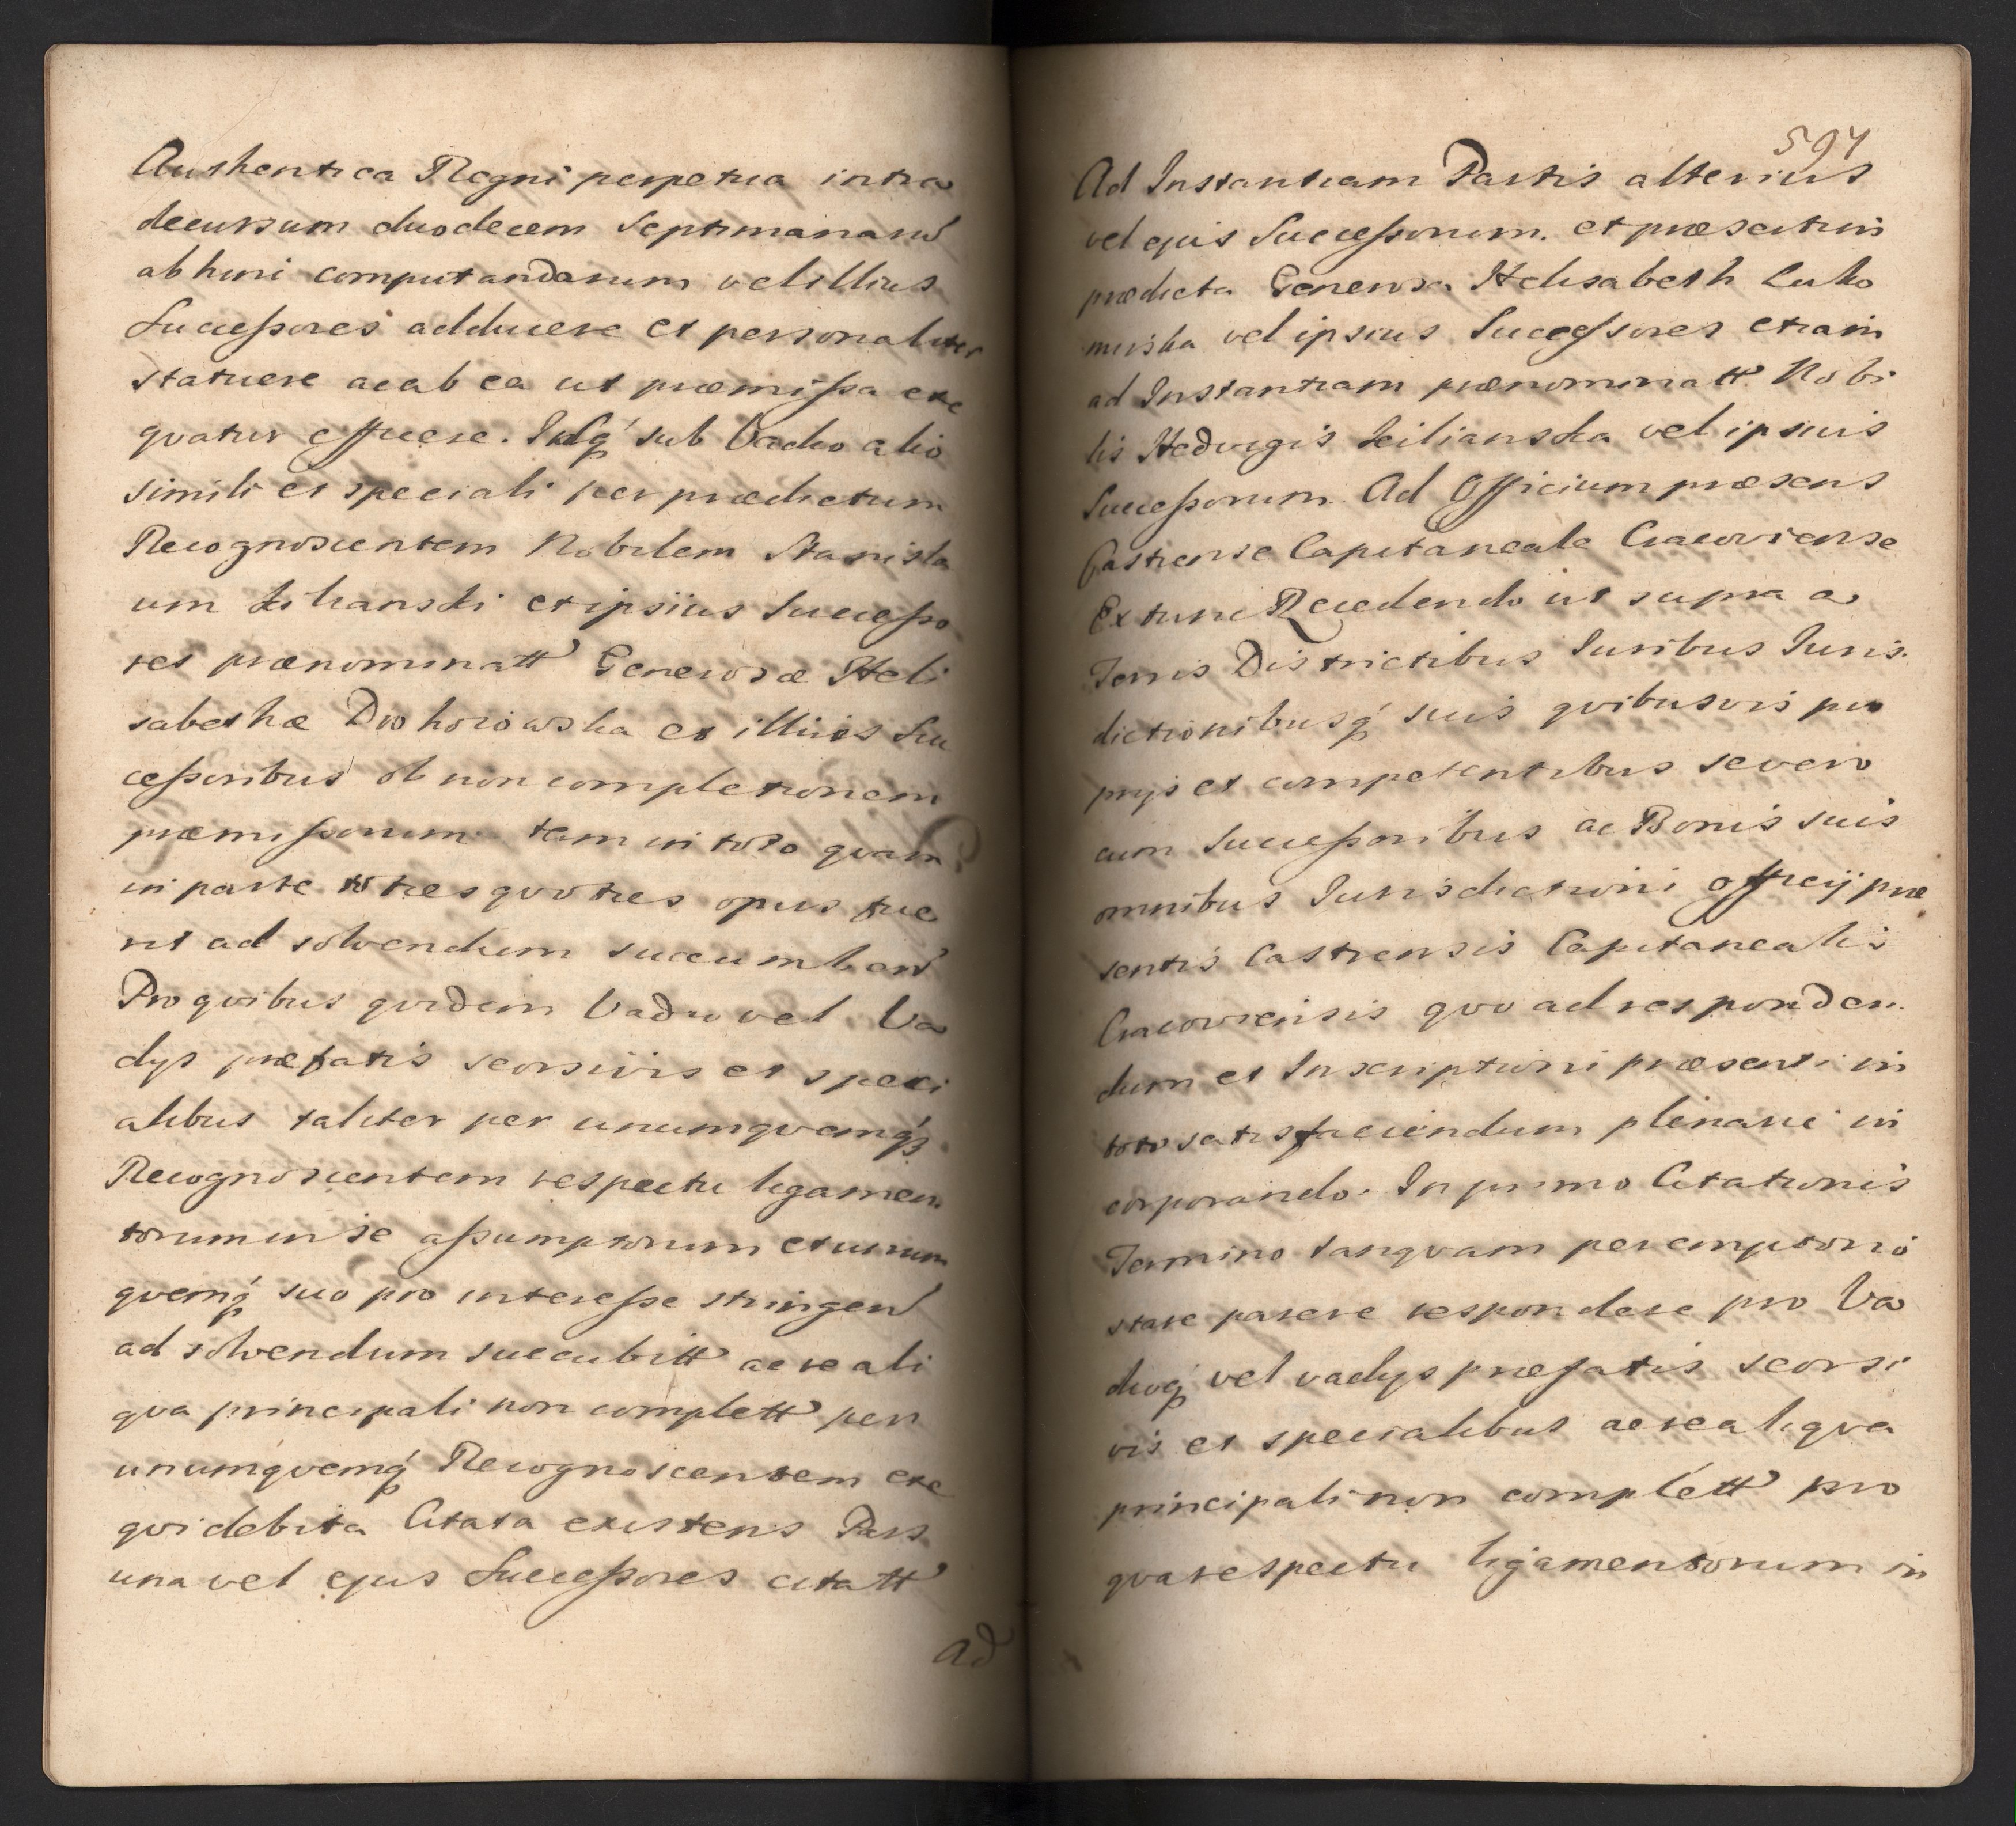 Authentica Regni perpetua intra
decursum duodecem Septimanarũ
ab hinc computandarum vel illius
Sucessores adducere et personaliter
statuere ac ab ea ut præmissa exe
qvatur efficere. Idq́ sub Vadio alio
simili et speciali per prædictum
Recognoscentem Nobilem Stanisla
um Kilianski et ipsius Sucesso
res prænominatt Generosæ Heli
sabethæ Drohoiowska et illius Su
cessoribus ob non completionem
præmissorum tam in toto qvam
in parte toties qvoties opus fue
rit ad solvendum succumben
Pro qvibus qvidem Vadio vel Va
dys præfatis seorsivis et speci
alibus taliter per unumqvemq́
Recognoscentem respectu ligamen
torum in se assumptorum et unum
qvemq́ suo pro interesse stringen
ad solvendum succubitt ac re ali
qva principali non complett per
unumqvemq́ Recognoscentem exe
qvi debita Citata existens Pars
una vel ejus Sucessores citatt
Ad
594
Ad Instantiam Partis alterius
vel ejus Sucessorum. et præsertim
prædicta Generosa Helisabeth Luko
mirska vel ipsius Sucessores etiam
ad Instantiam prænominatt Nobi
lis Hedvigis Kilianska vel ipsius
Sucessorum Ad Officium præsens
Castrense Capitaneale Cracoviense
Extunc Recedendo ut supra a
Terris Districtibus Iuribus Iuris
dictionibusq́ suis qvibusvis pro
prys et competentibus severo
cum Sucessoribus ac Bonis suis
omnibus Iurisdictioni officij præ
sentis Castrensis Capitanealis
Cracoviensis qvo ad responden
dum et Inscriptioni præsenti in
toto satisfaciendum plenarie in
corporando. In primo Citationis
Termino tanqvam peremptorio
stare parere respondere pro Va
dioq́ vel vadys præfatis seorsi
vis et specialibus ac re aliqva
principali non complett pro
qva respectu ligamentorum in